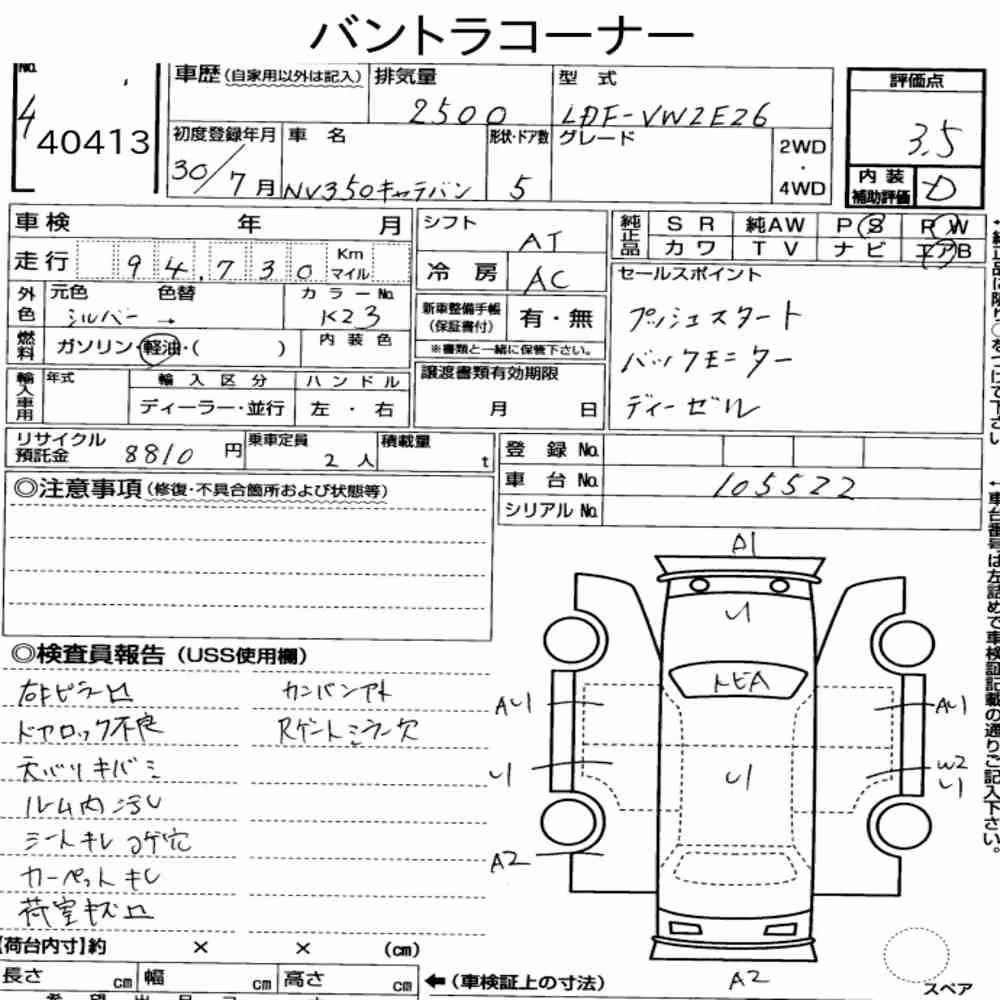 バントラコーナー
No.
4
40413
車歴(自家用以外は記入)
排気量
2500
型 式
LDF-VW2E26
評価点
3.5
内装補助評価
D
初度登録年月
30/7月
車 名
NV350キャラバン
形状・ドア数
5
グレード
2WD
・
4WD
車検 年 月
走行 94,730 Km マイル
シフト
AT
冷房
AC
純正品
SR 純AW PS PW
カワ TV ナビ エアB
外色
元色 色替
シルバー →
カラーNo.
K23
燃料
ガソリン・軽油・( )
内装色
新車整備手帳
(保証書付)
有・無
※書類と一緒に保管下さい。
セールスポイント
プッシュスタート
バックモニター
ディーゼル
輸入車用
年式
輸入区分
ディーラー・並行
ハンドル
左・右
譲渡書類有効期限
月 日
リサイクル預託金
8810円
乗車定員
2人
積載量
t
登録No.
車台No.
105522
シリアルNo.
◎注意事項(修復・不具合箇所および状態等)
◎検査員報告(USS使用欄)
ドアロック不良
ルーム内汚レ
シートキレ コゲ穴
カーペットキレ
カンバンアト
Rゲートミラー欠
A1
U1
トビA
AU1
AU1
U1
U1
W2
U1
A2
A2
スペア
【荷台内寸】約 × × (cm)
長さ cm 幅 cm 高さ cm
←(車検証上の寸法)
←車台番号は左詰めで車検証記載の通りご記入下さい。